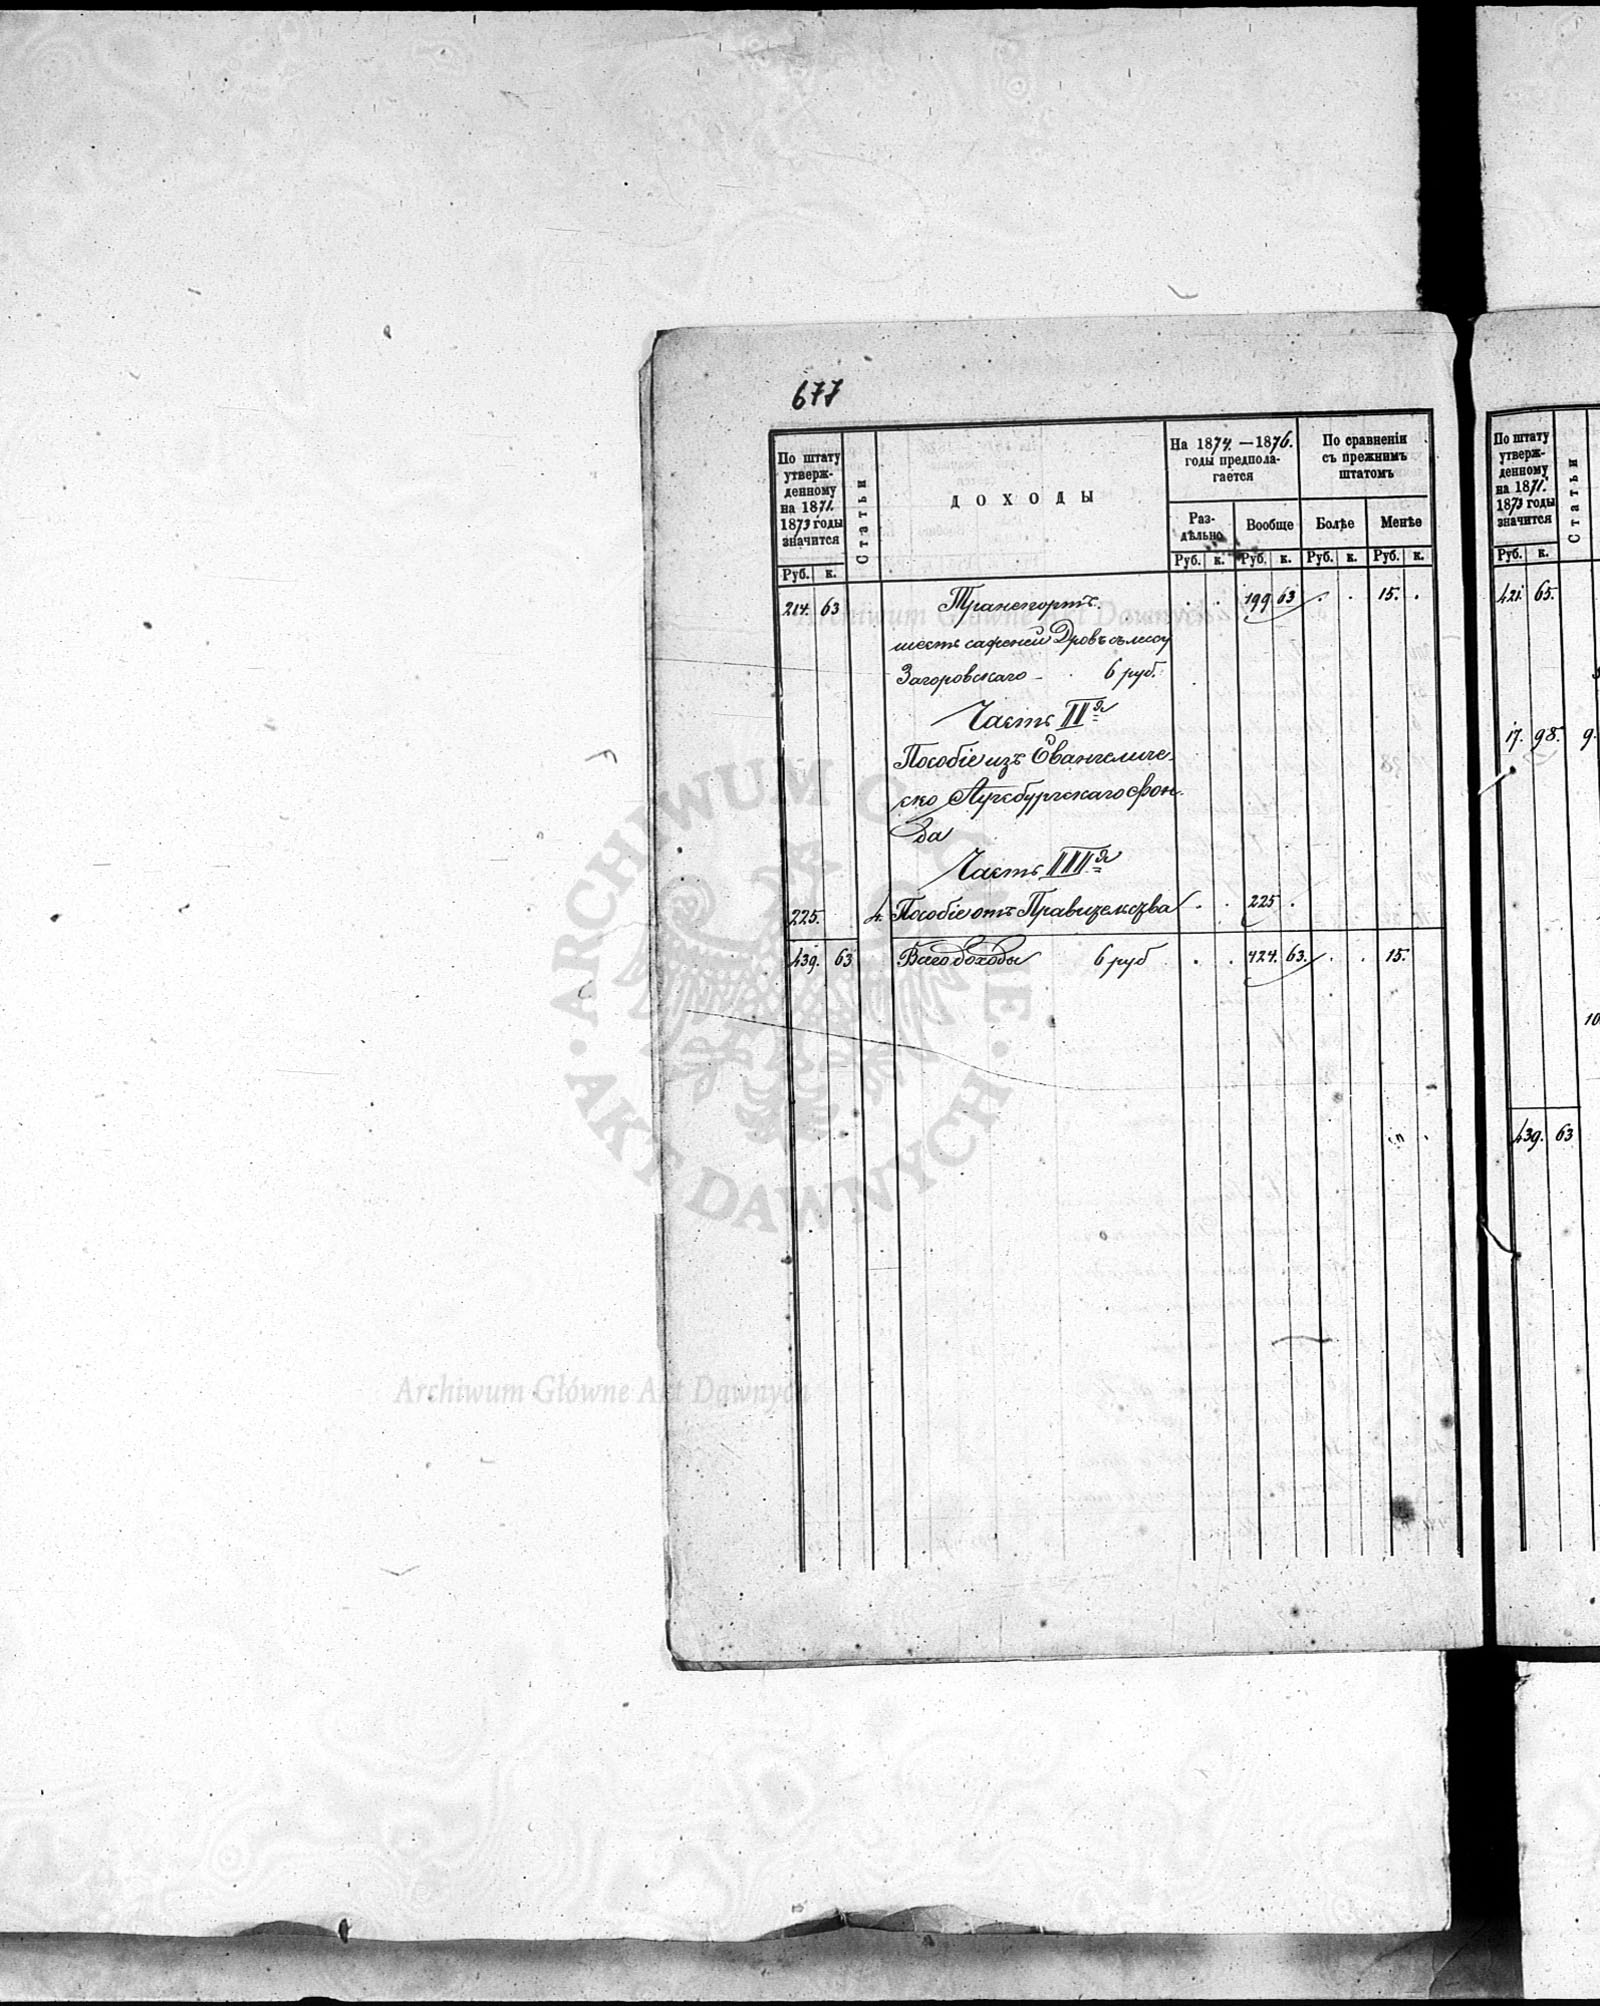 677
По штату утверж-денному на 1871. 1873 годы значится
Статьи
ДОХОДЫ
На 1874. —1876. годы предпола-гается
По сравненію съ прежнимъ штатомъ
Раз-дѣльно
Вообще
Болѣе
Менѣе
Руб. к. Руб. к. Руб. к. Руб. к. Руб. к.
214. 63 Транспортъ. . . 199 63 . . 15. .
шесть саженей Дровъ съ лесу
Загоровскаго - . 6 руб.
Часть II я
Пособіе изъ Евангеличе-
ско Аугсбургскаго фон-
да
Часть III я
225. 4. Пособіе отъ Правительства . . 225 .
439. 63 Всего доходы 6 руб . . 424. 63. . . 15.
По штату утверж-денному на 1871. 1873 годы значится
Статьи
Руб. к.
421. 65.
17. 98. 9.
10
439. 63
ARCHIWUM GŁÓWNE AKT DAWNYCH
Archiwum Główne Akt Dawnych
Archiwum Główne Akt Dawnych